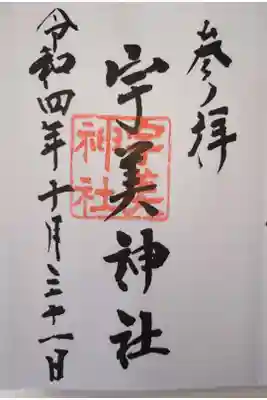 参拝
宇美神社
宇美
神社
令和四年十月三十一日